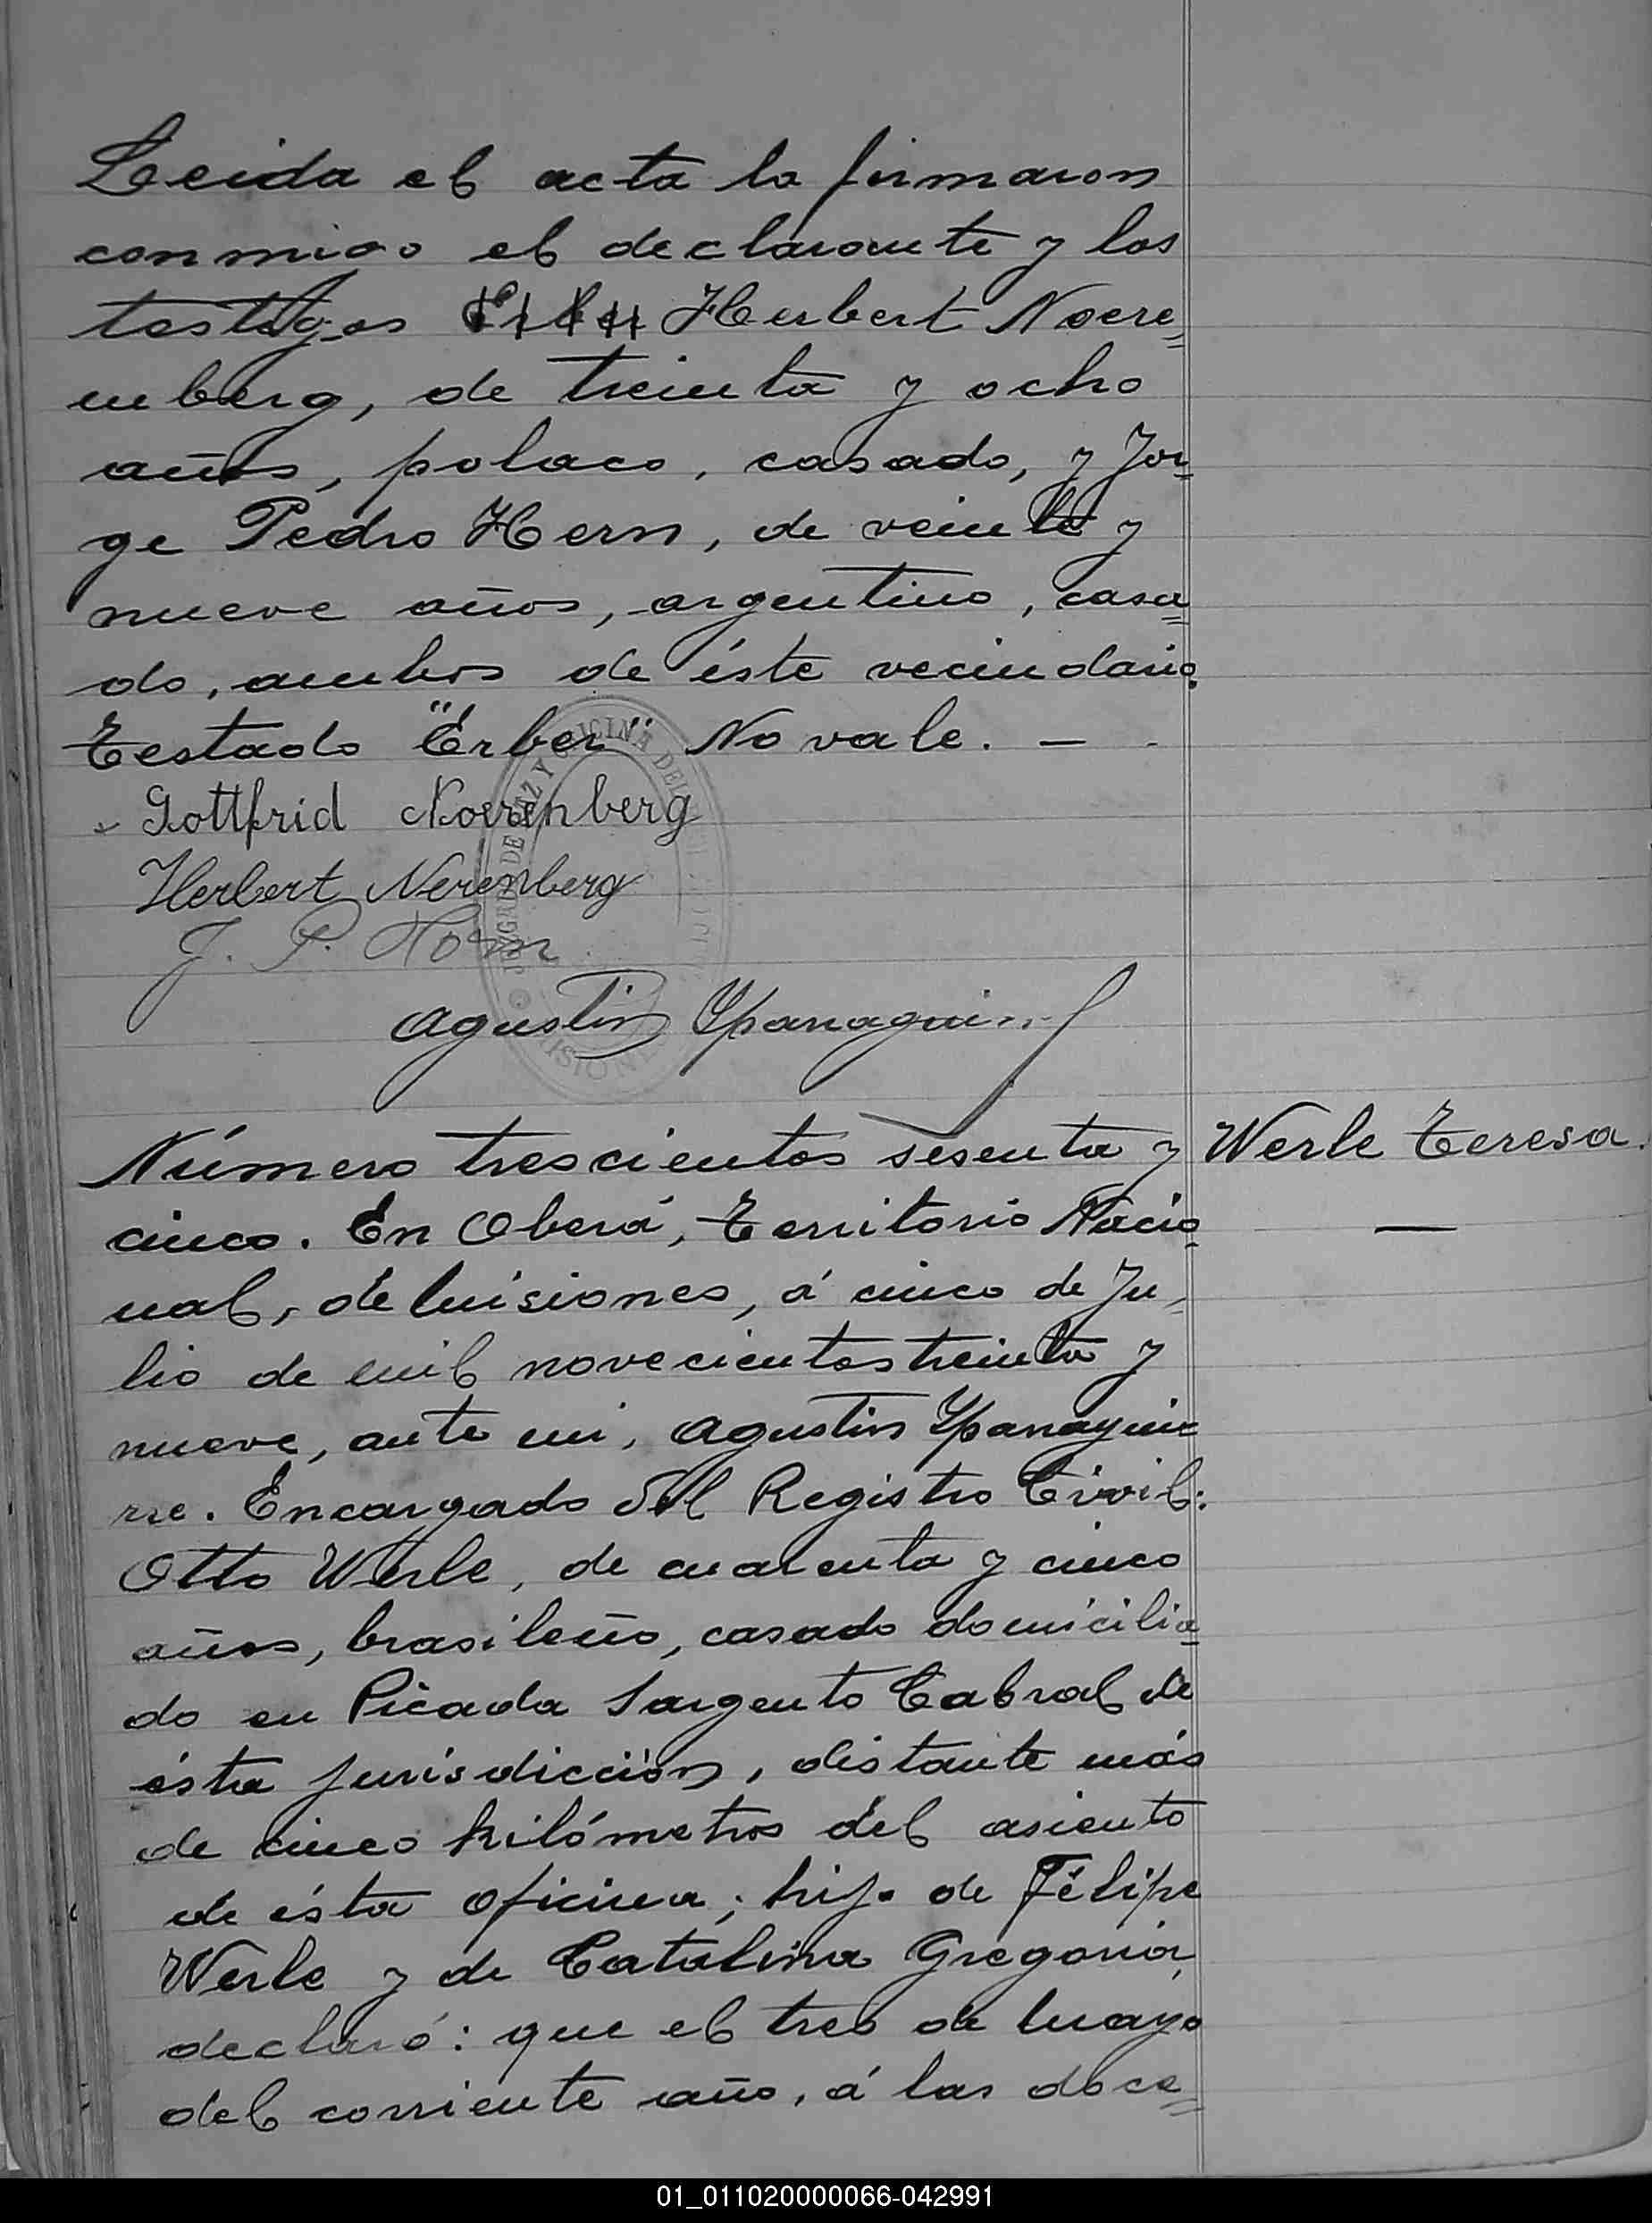 Leida el acta la firmaron
conmigo el declarante y los
testigos Erber Herbert Noere=
nberg, de treinta y ocho
años, polaco, casado, y Jor=
ge Pedro Horn, de veinte y
nueve años, argentino, casa=
do, ambos de éste vecindario.
Testado "Erber" No vale. —
Gottfrid Noerenberg
Herbert Nerenberg
J. P. Horn
Agustin Yparraguirre
Número trescientos sesenta y
Werle Teresa.
cinco. En Oberá, Territorio Nacio=
nal, de Misiones, á cinco de Ju=
lio de mil novecientos treinta y
nueve, ante mi, Agustin Yparraguir
rre. Encargado del Registro Civil:
Otto Werle, de cuarenta y cinco
años, brasileño, casado domicilia=
do en Picada Sargento Cabral de
ésta jurisdicción, distante más
de cinco kilómetros del asiento
de ésta oficina; hijo de Félipe
Werle y de Catalina Gregoria,
declaró: que el tres de Mayo
del corriente año, á las doce=
01_011020000066-042991